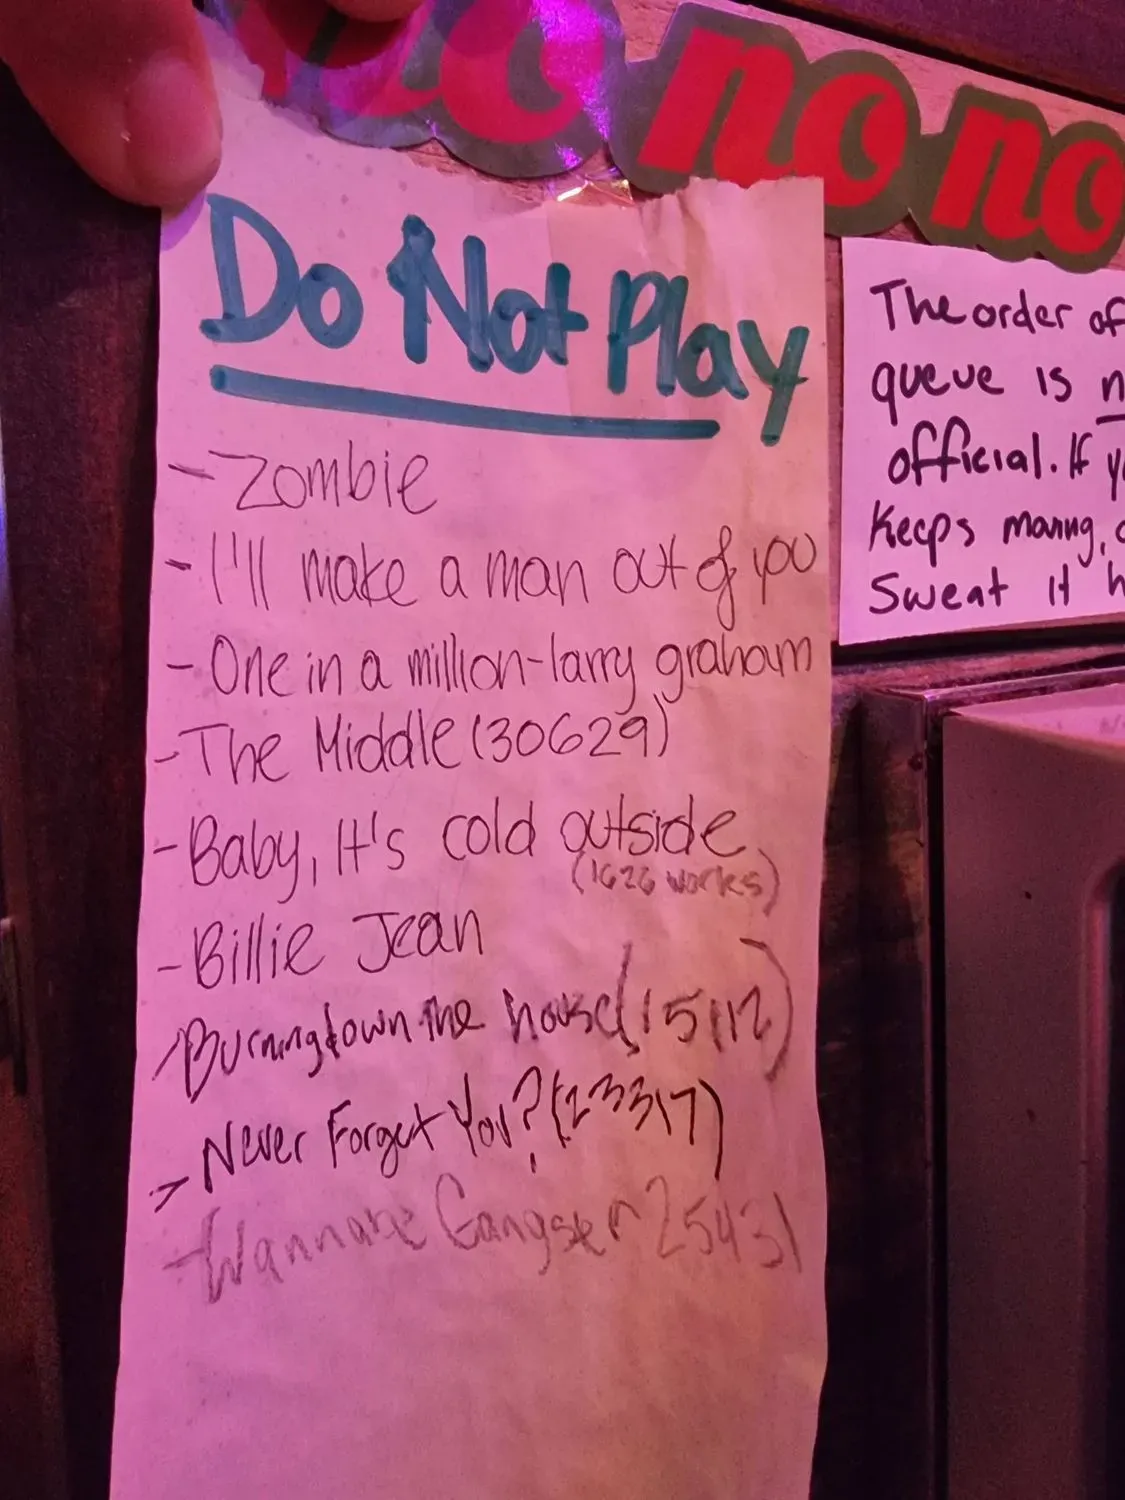 no no no
Do Not Play
- Zombie
- I'll make a man out of you
- One in a million - larry graham
- The Middle (30629)
- Baby, It's cold outside
(1626 works)
- Billie Jean
- Burning down the house (15112)
- Never Forget You? (23317)
- Wannabe Gangster 25431
The order of
queue is
official. If
Keeps moving,
Sweat it